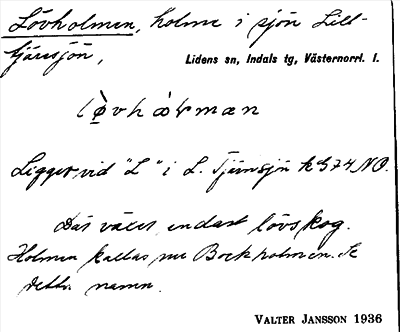 Lövholmen, holme i sjön Lill-
tjärnsjön,
Lidens sn, Indals tg, Västernorrl. l.
Ligger vid "L" i L. Tjärnsjön k 574 NO.
Där växer endast lövskog.
Holmen kallas nu Bockholmen. Se
detta namn.
VALTER JANSSON 1936